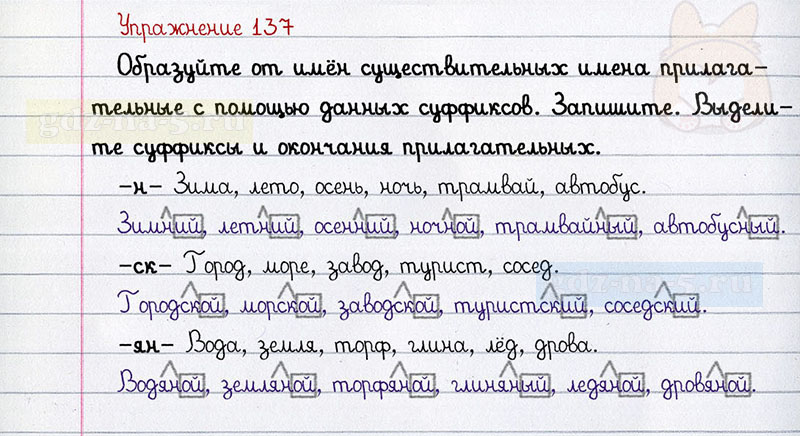 Упражнение 137
Образуйте от имён существительных имена прилага-
тельные с помощью данных суффиксов. Запишите. Выдели-
те суффиксы и окончания прилагательных.
-н- Зима, лето, осень, ночь, трамвай, автобус.
Зимний, летний, осенний, ночной, трамвайный, автобусный.
-ск- Город, море, завод, турист, сосед.
Городской, морской, заводской, туристский, соседский.
-ян- Вода, земля, торф, глина, лёд, дрова.
Водяной, земляной, торфяной, глиняный, ледяной, дровяной.
gdz-na-5.ru
gdz-na-5.ru